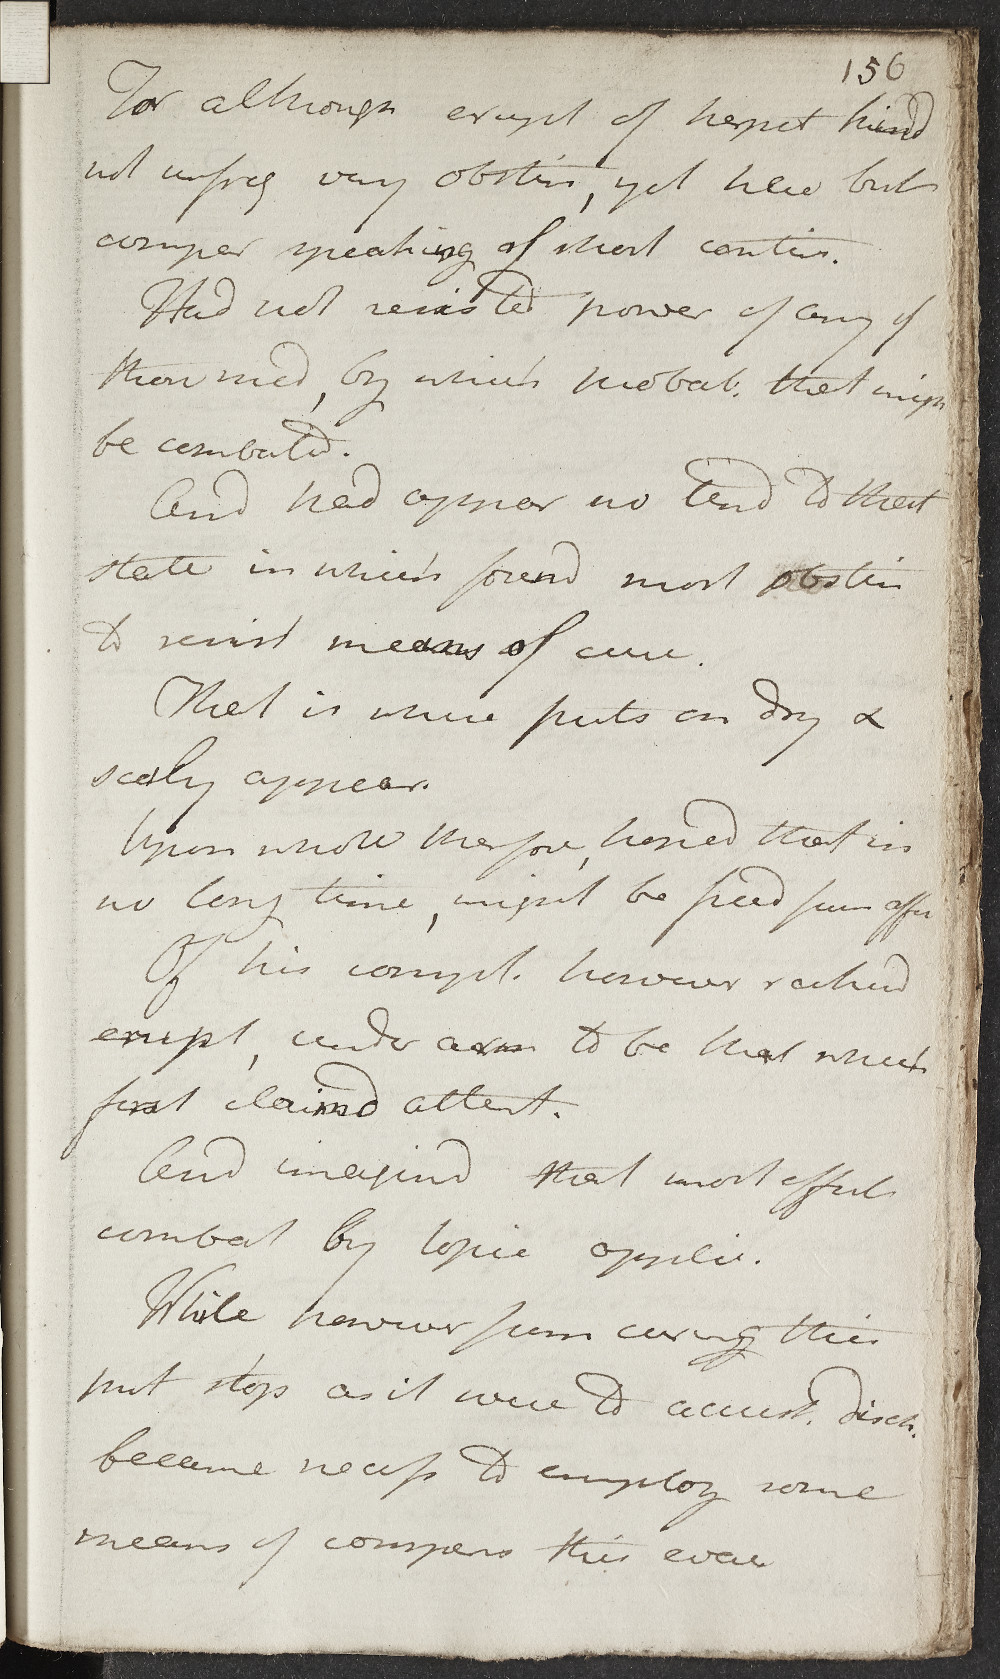 156
For although erupt of herpet kind
not unfreq very obstin, yet here but
comper speaking of short contin.
Had not resisted power of any of
those med, by which probab. that migh
be combated.
And had appear no tend to that
state in which found most obstin
to resist means of cure.
That is where puts on dry &
scaly appear.
Upon whole therefore, hoped that in
no long time, might be freed from affec
Of his compl. however rathed
erupt, under arm to be that which
first claimd attent.
And imagind that most effect
combat by topic applic.
While however from curing this
put stop as it were to accust. disch.
became necess to employ some
means of compens this evac